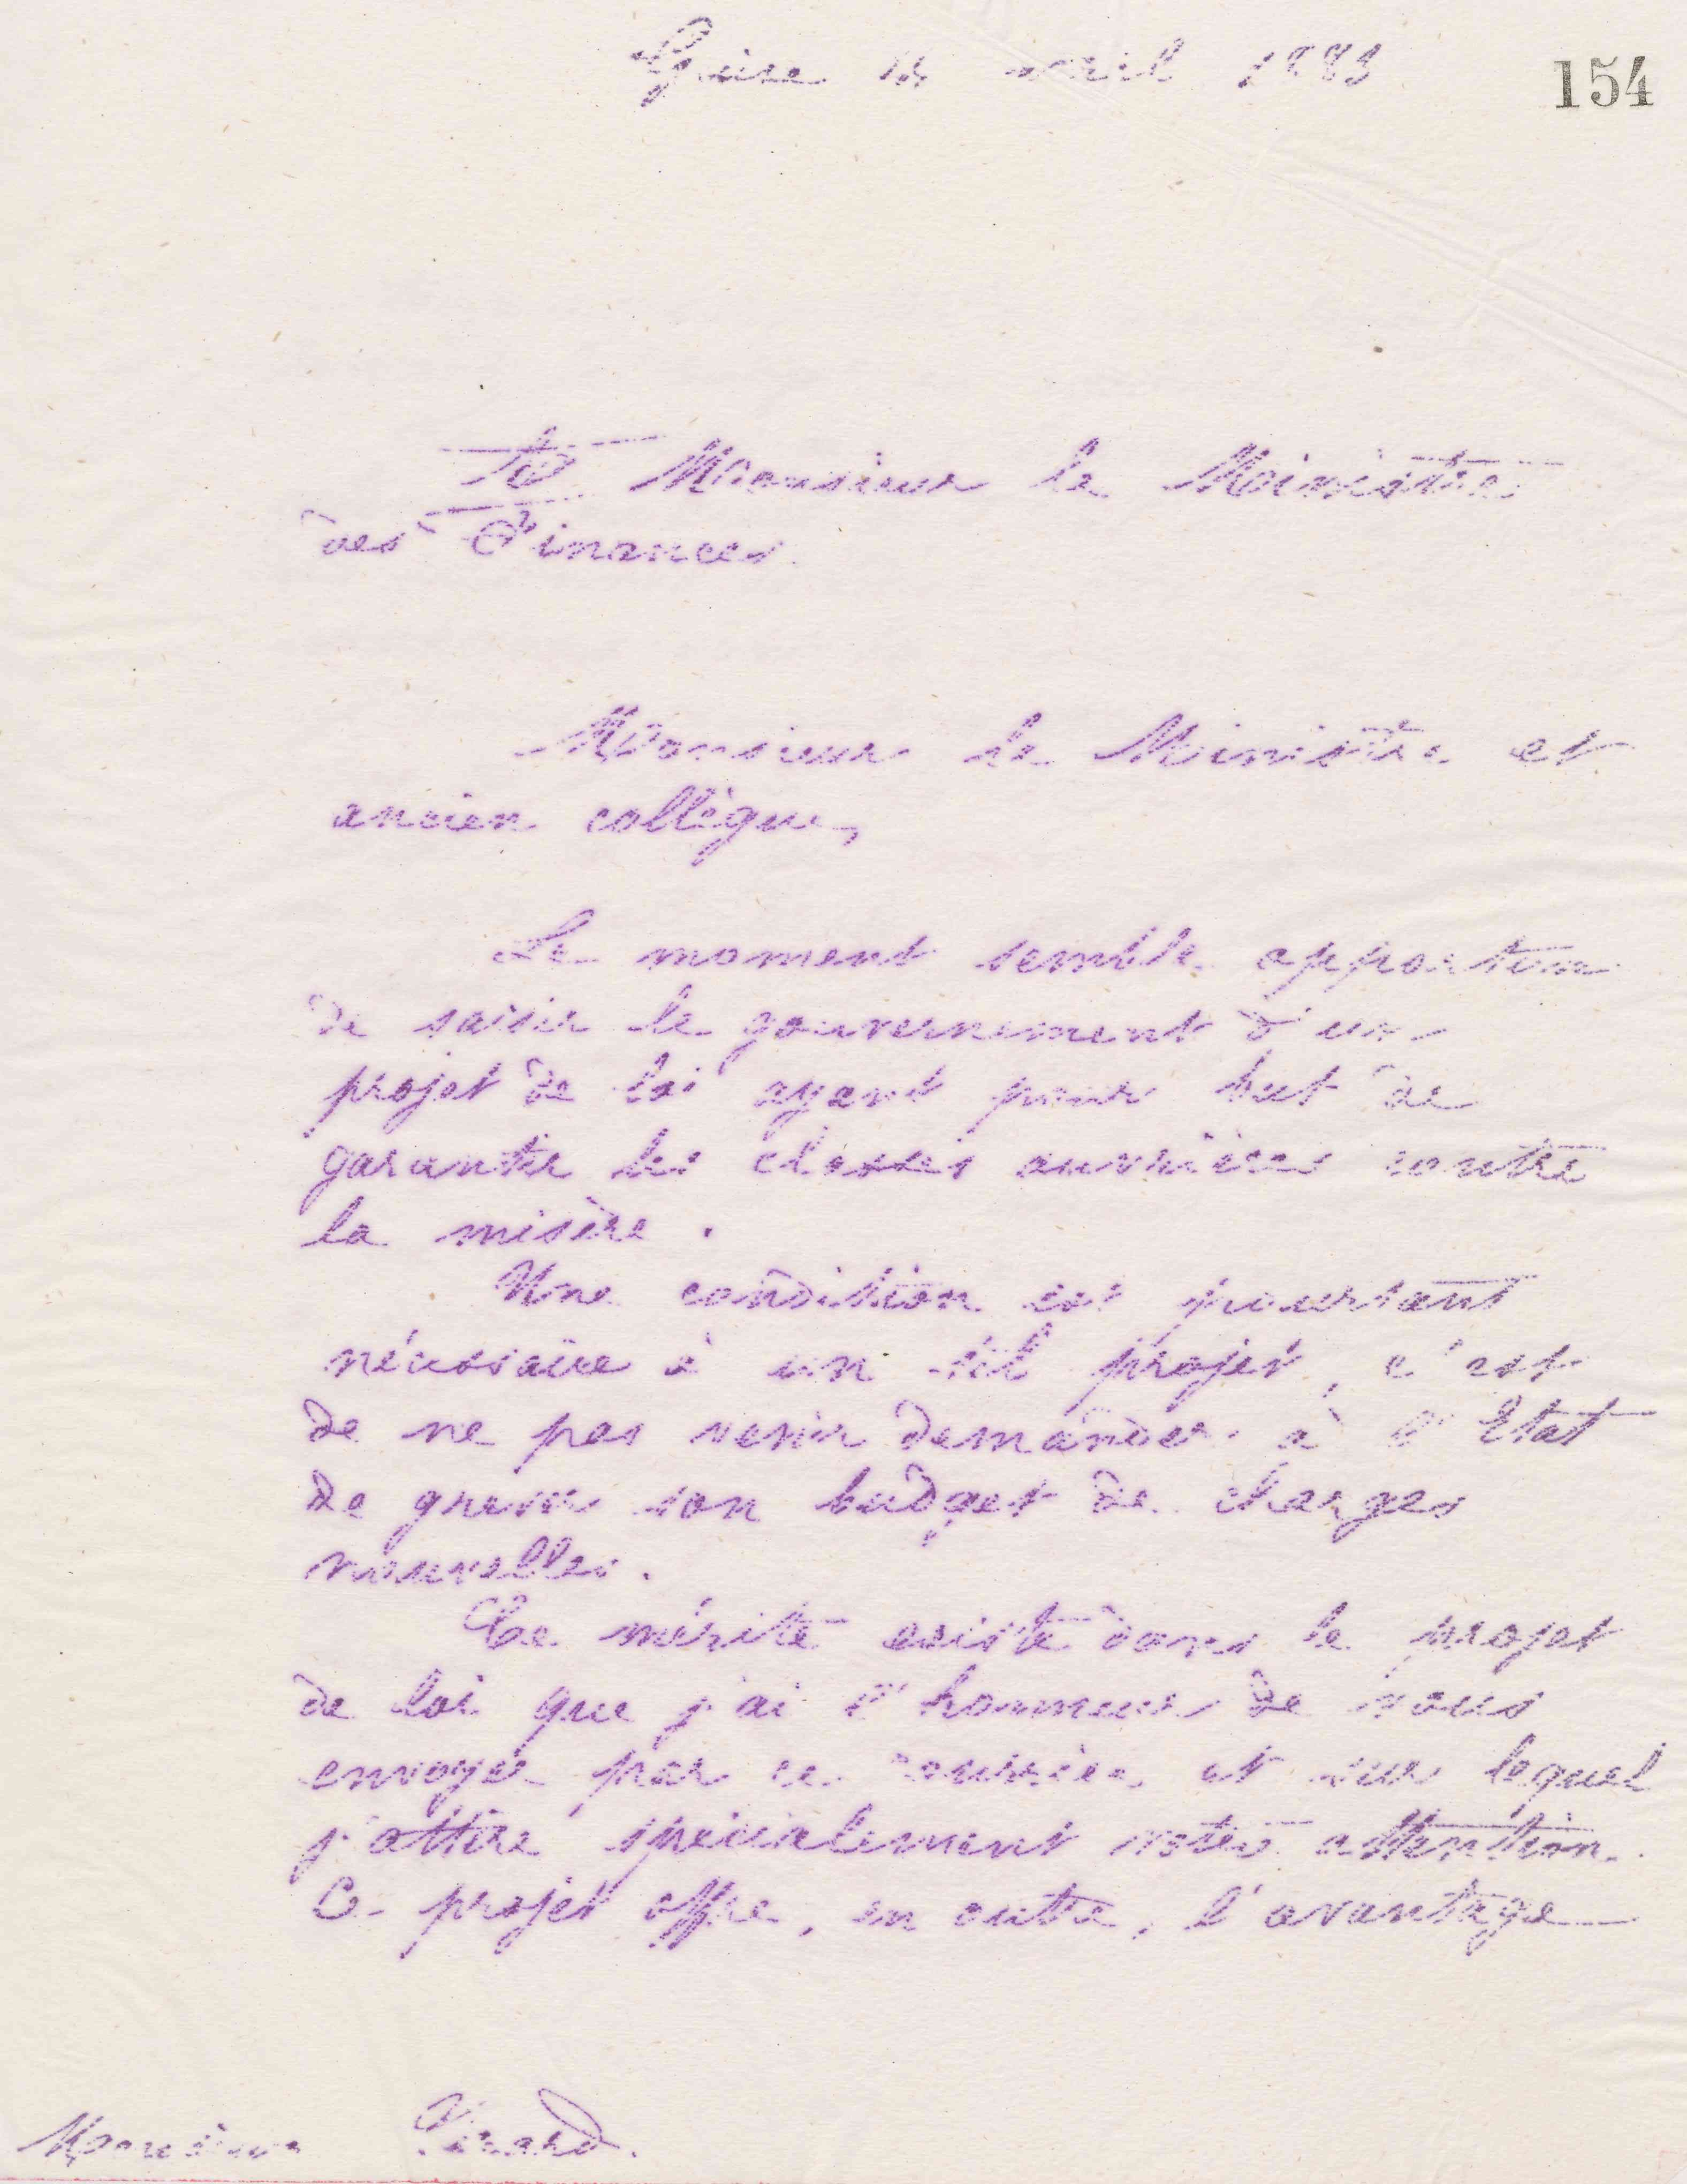 Guise 14 avril 1883
154
A Monsieur le Ministre
des Finances.
Monsieur le Ministre et
ancien collègue,
Le moment semble opportun
de saisir le gouvernement d'un
projet de loi ayant pour but de
garantir les classes ouvrières contre
la misère.
Une condition est pourtant
nécessaire à un tel projet, c'est
de ne pas venir demander à l'Etat
de grever son budget de charges
nouvelles.
Ce mérite existe dans le projet
de loi que j'ai l'honneur de vous
envoyer par ce courrier et sur lequel
j'attire spécialement votre attention.
Ce projet offre, en outre, l'avantage
Monsieur Tirard.